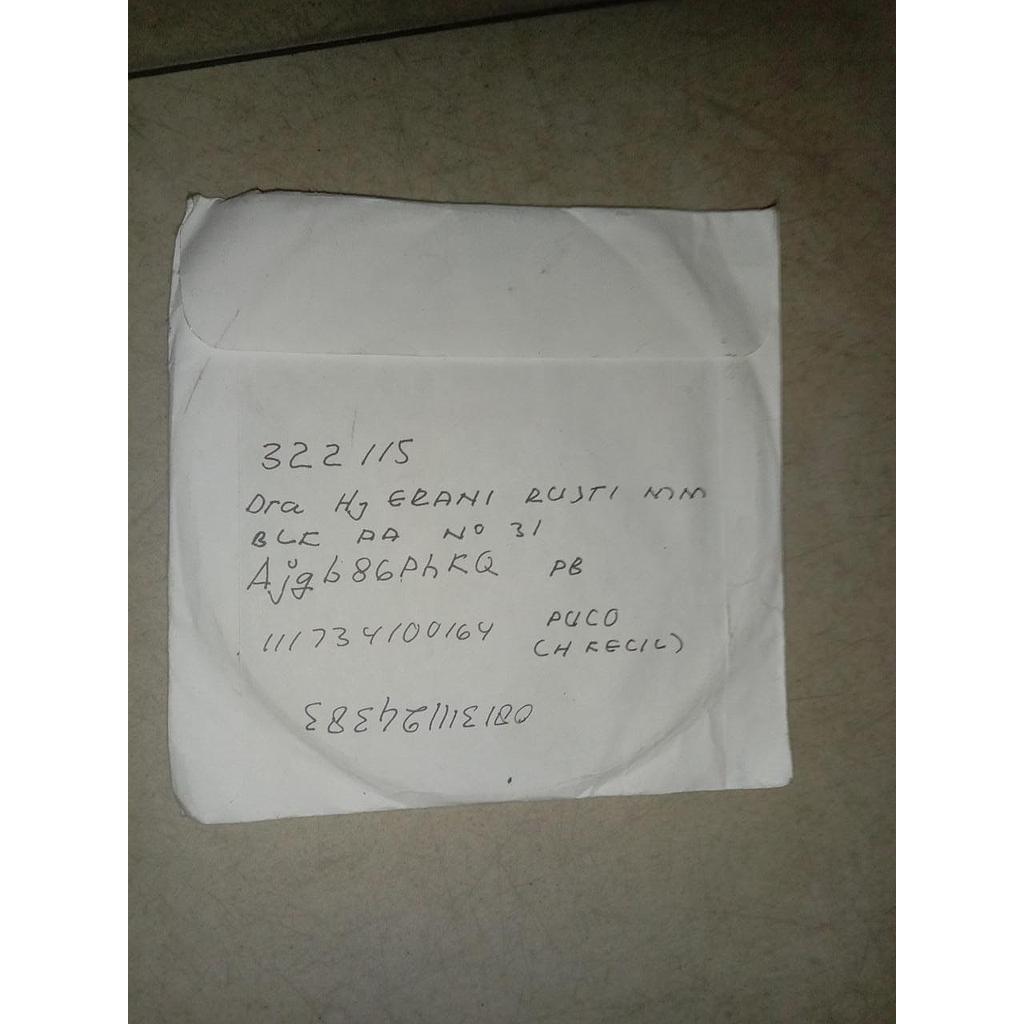 322115
Dra Hj ERANI RUSTI MM
BLK AA No 31
Ajgb86PhKQ PB
111734100164 PUCO
(H KECIL)
081311124383